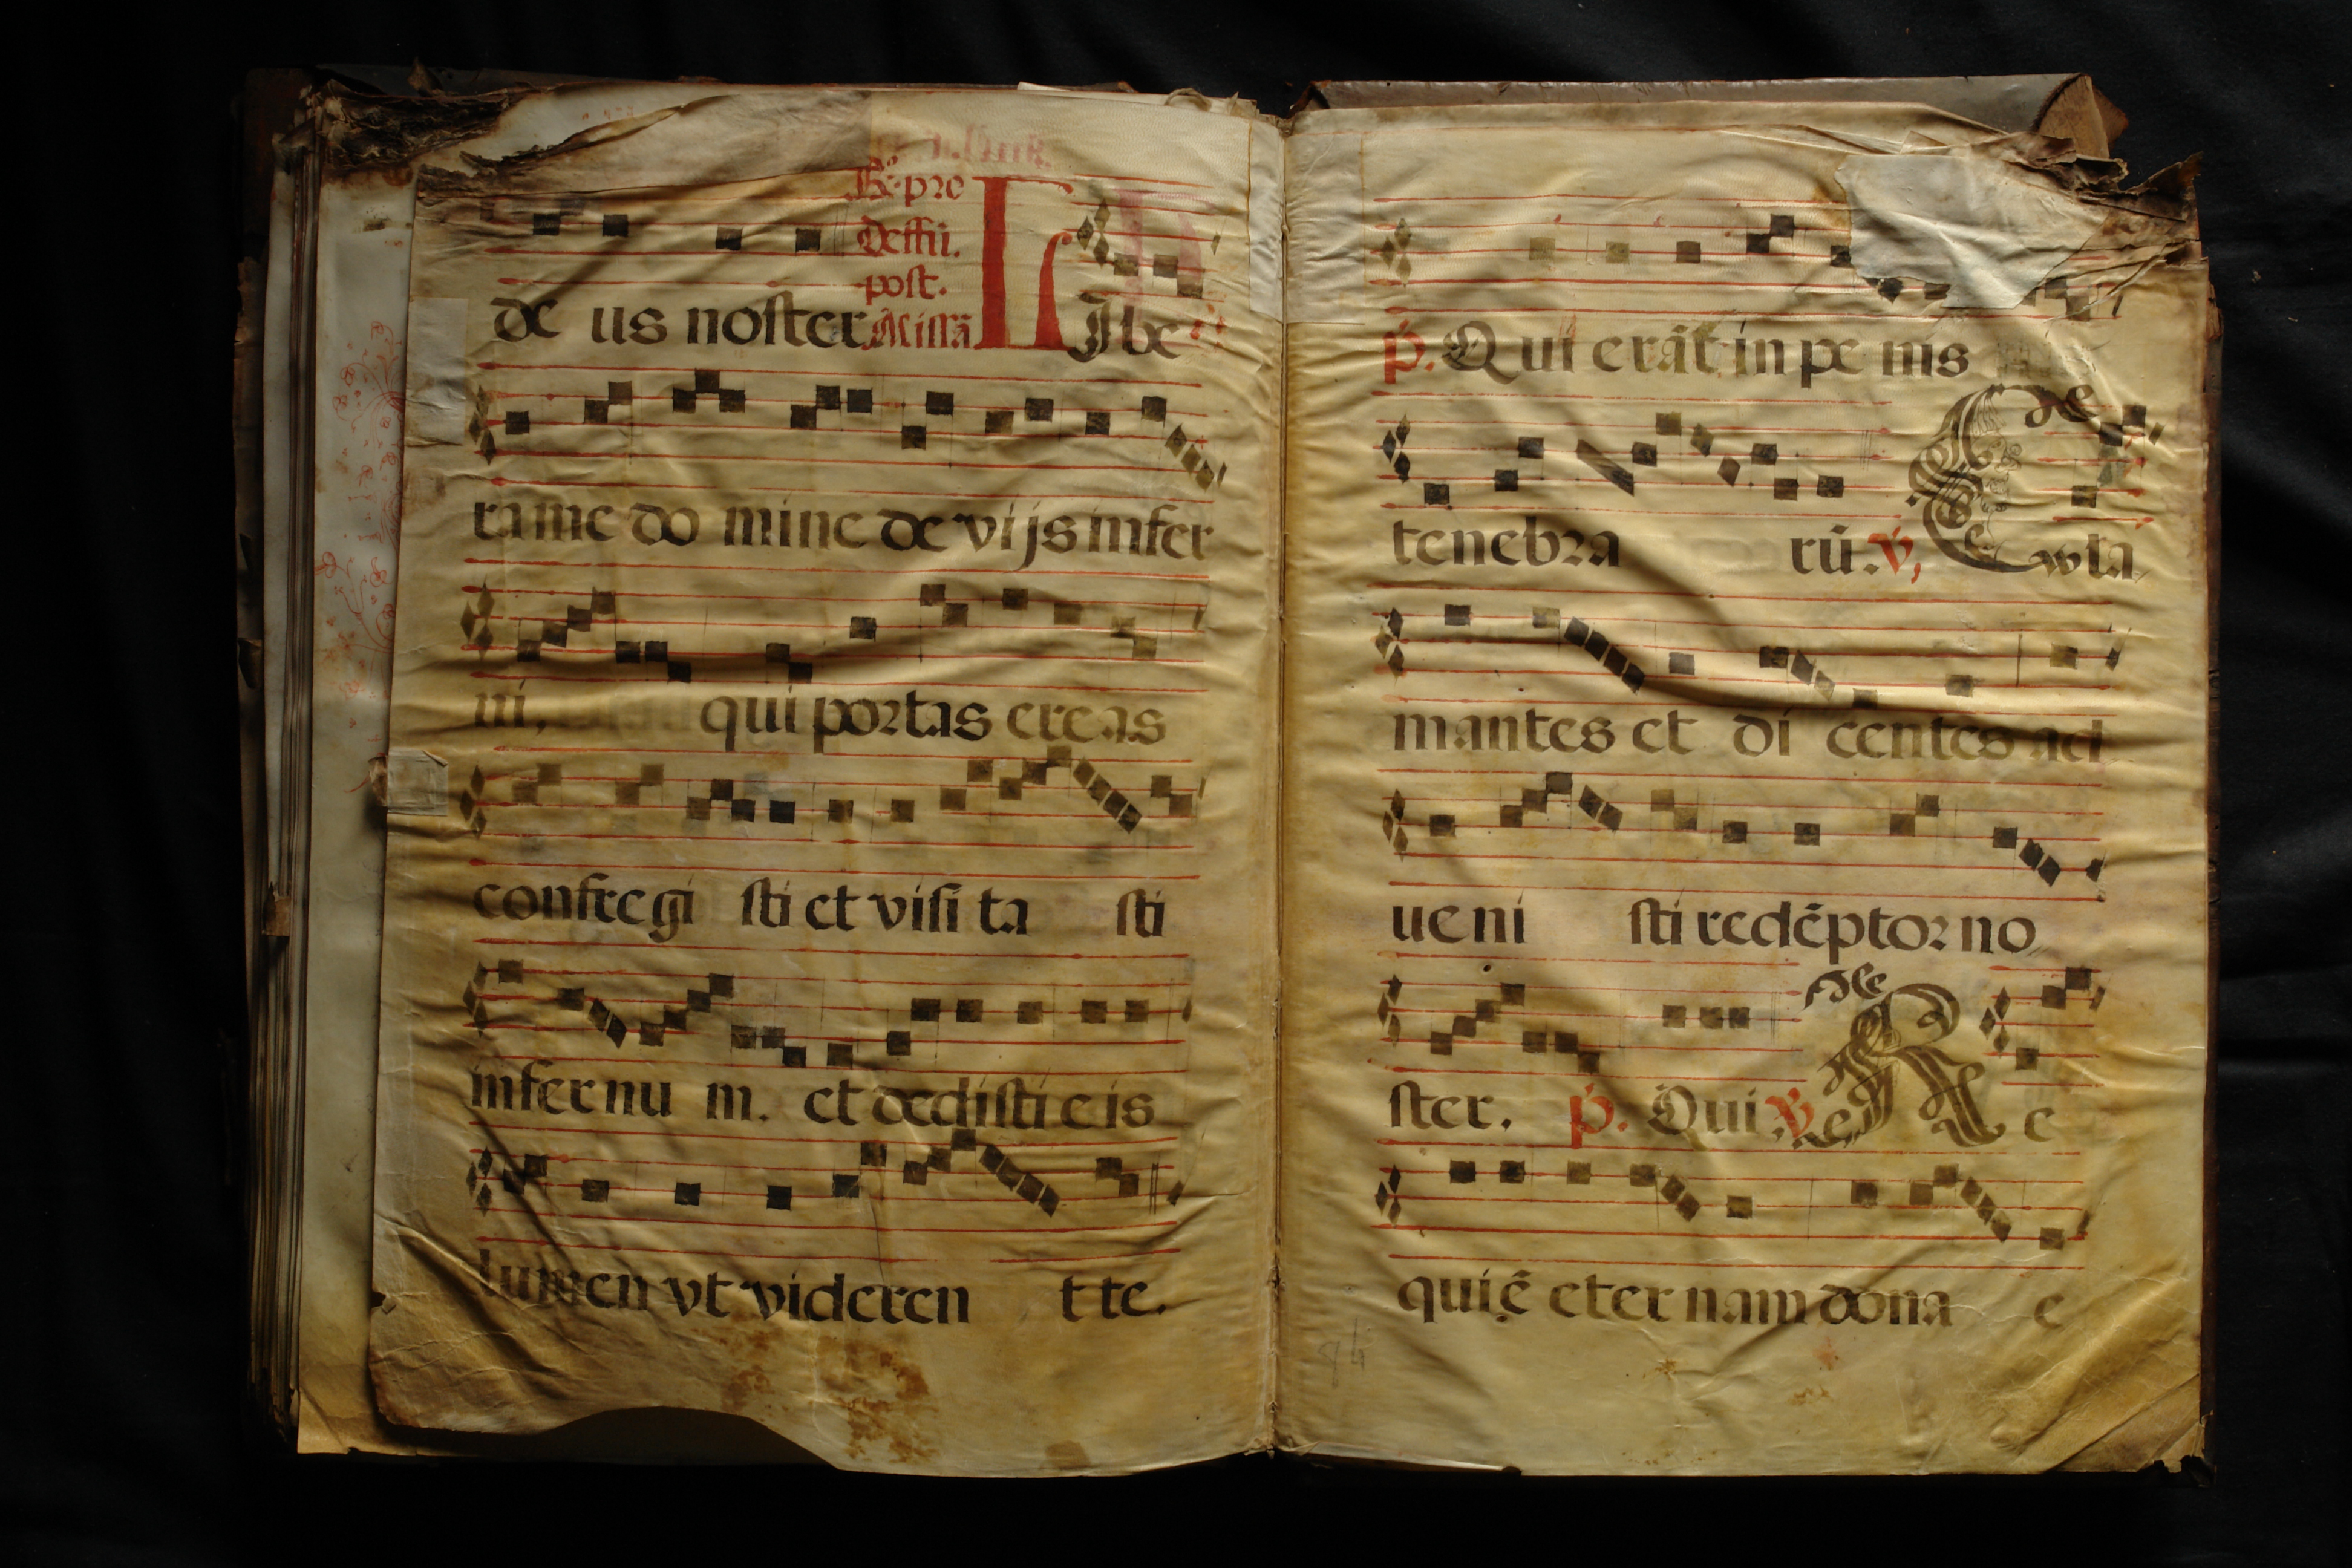 R. pro
deffū.
post.
de us noster Missā LIbe
ra me do mine de vijs infer
ni, qui portas ereas
confregi sti et visi ta sti
infernu m. et dedisti eis
lumen vt videren t te.
p. Qui erāt in pe nis
tenebra rū. v, Cla
mantes et di centes ad
ueni sti redēptor no
ster. p. Qui v Re
quiē eter nam dona e